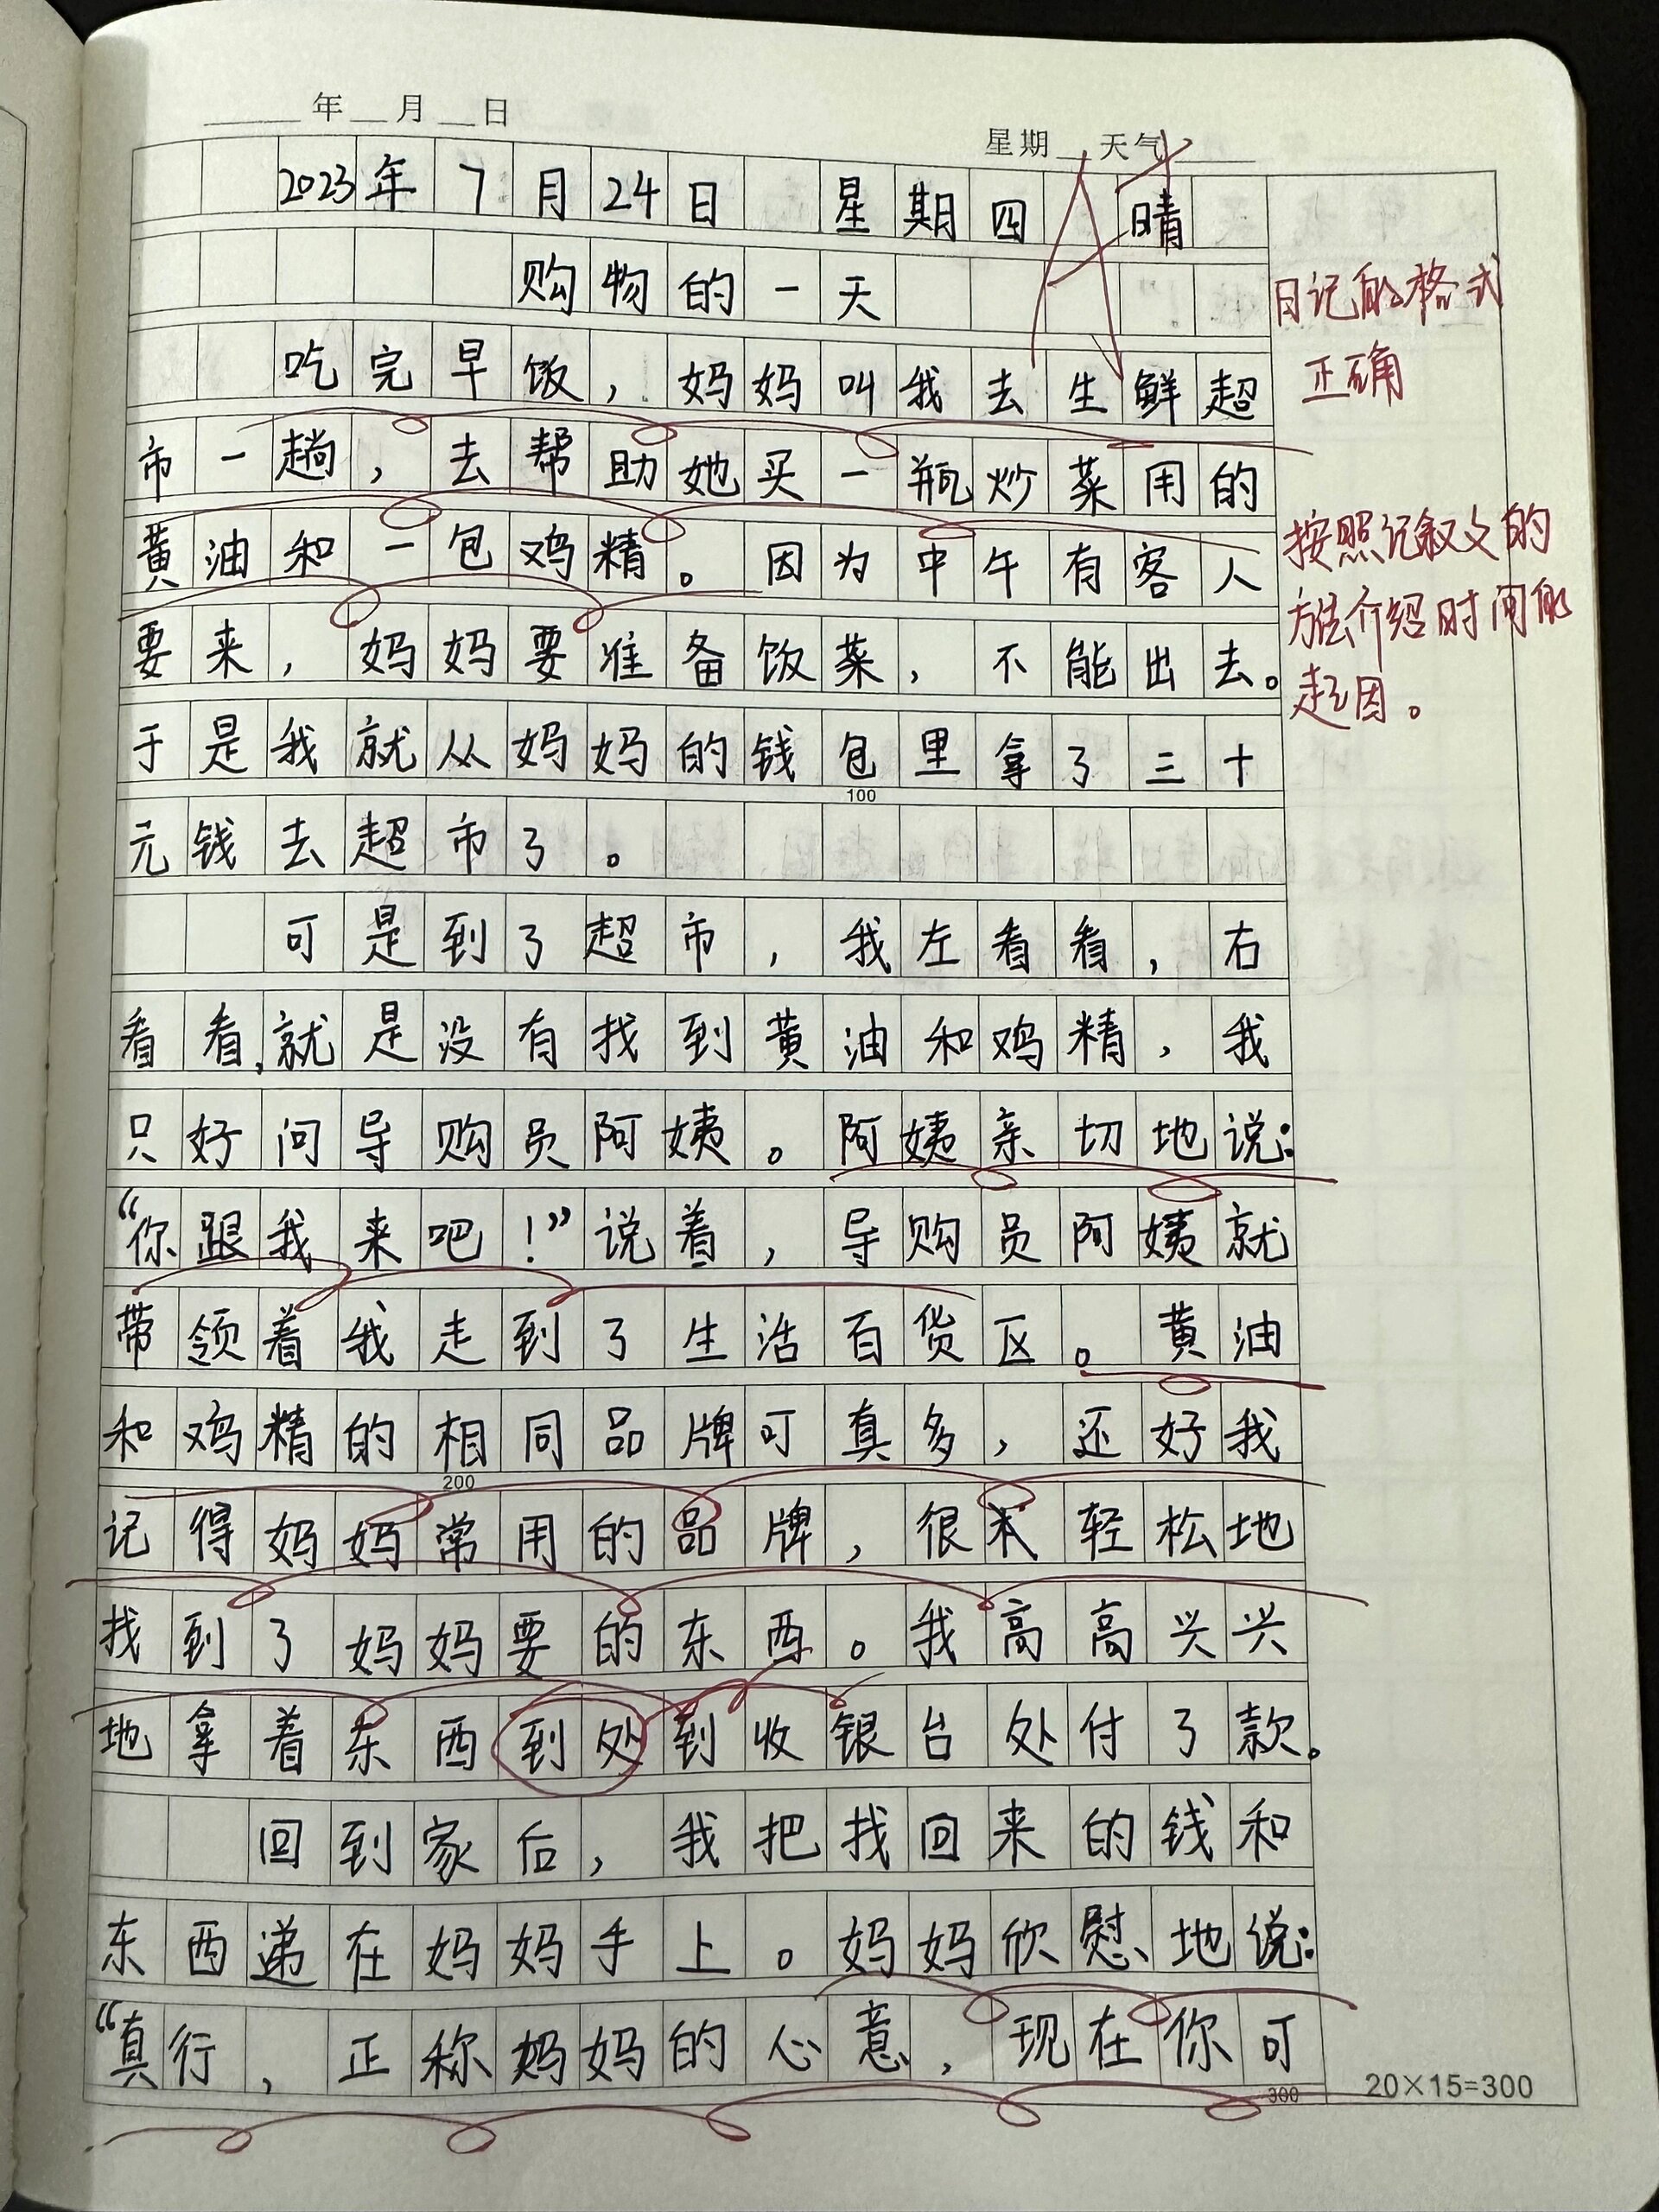 年 月 日
星期 天气
A+
2023年7月24日 星期四 晴
购物的一天
日记的格式
正确
吃完早饭，妈妈叫我去生鲜超
市一趟，去帮助她买一瓶炒菜用的
黄油和一包鸡精。因为中午有客人
按照记叙文的
方法介绍时间的
起因。
要来，妈妈要准备饭菜，不能出去。
于是我就从妈妈的钱包里拿了三十
100
元钱去超市了。
可是到了超市，我左看看，右
看看，就是没有找到黄油和鸡精，我
只好问导购员阿姨。阿姨亲切地说：
“你跟我来吧！”说着，导购员阿姨就
带领着我走到了生活百货区。黄油
和鸡精的相同品牌可真多，还好我
200
记得妈妈常用的品牌，很轻松地
找到了妈妈要的东西。我高高兴兴
地拿着东西到处到收银台处付了款。
回到家后，我把找回来的钱和
东西递在妈妈手上。妈妈欣慰地说：
“真行，正称妈妈的心意，现在你可
300
20×15=300